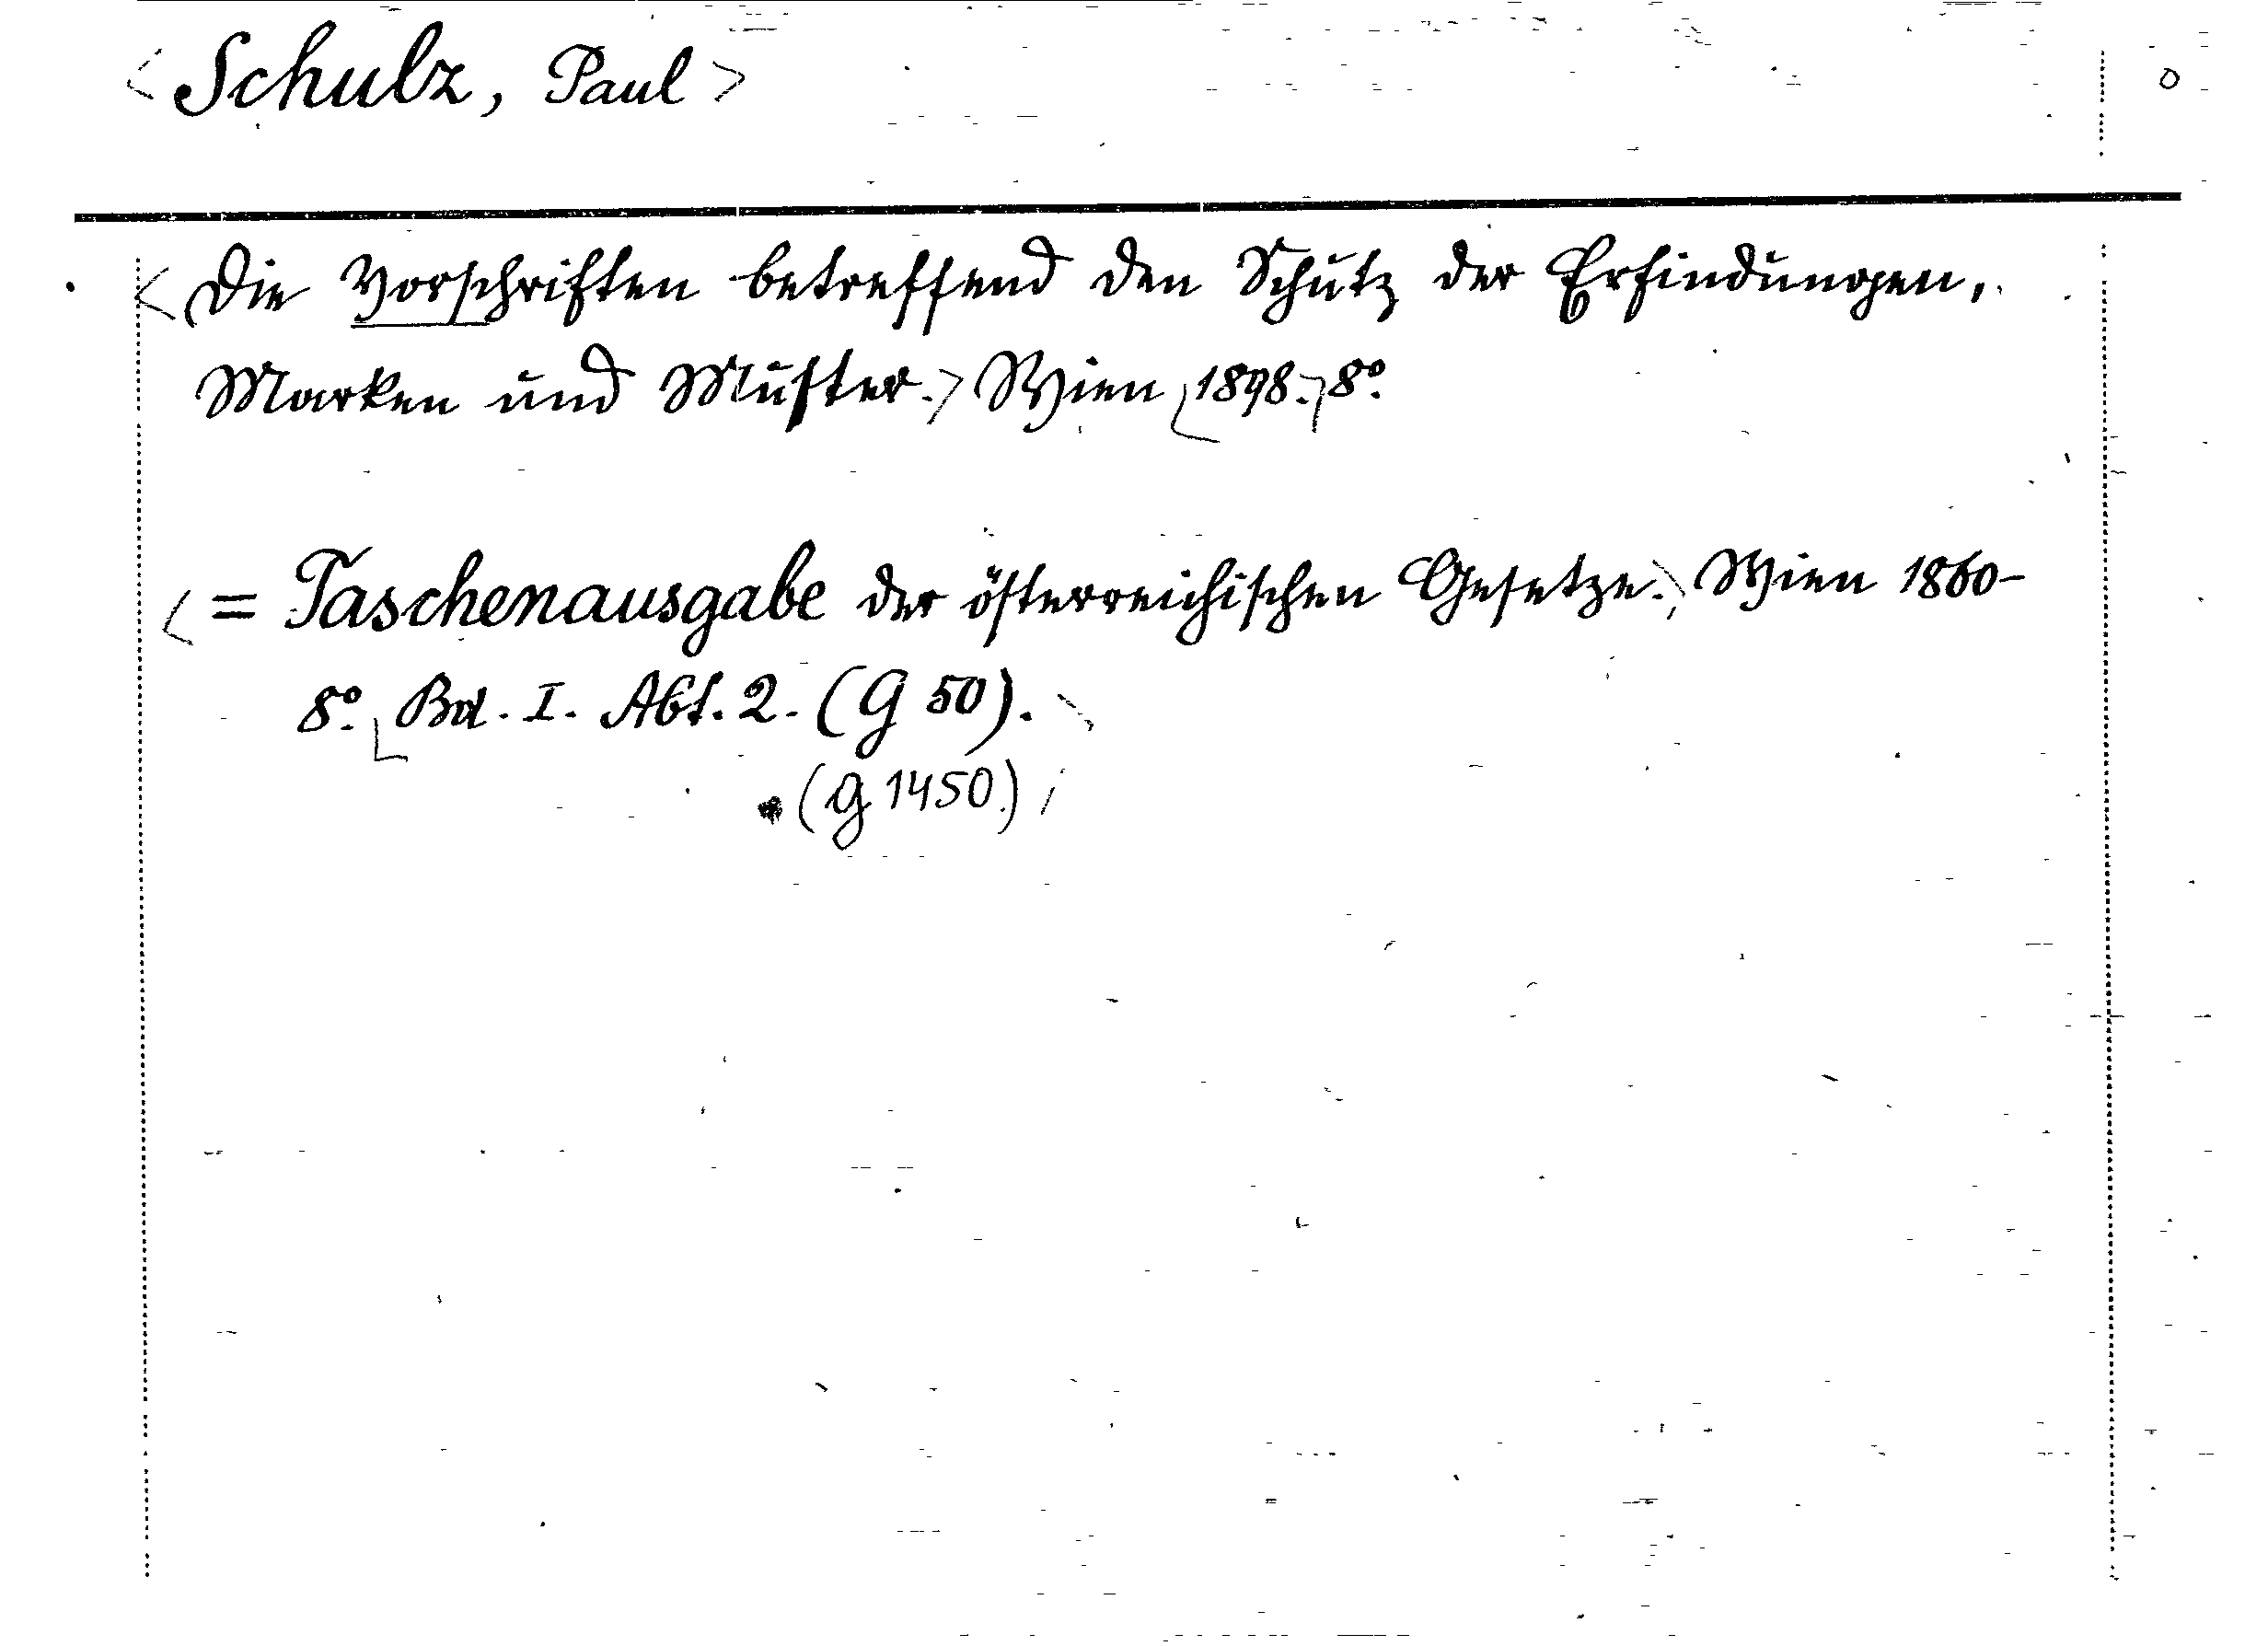 <Schulz, Paul>
<Die Vorschriften betreffend den Schutz der Erfindungen,
Marken und Muster.> Wien 1898. 8°.
<= Taschenausgabe der österreichischen Gesetze.> Wien 1860-
8°. Bd. I. Abt. 2. (G 50).
(G 1450.)